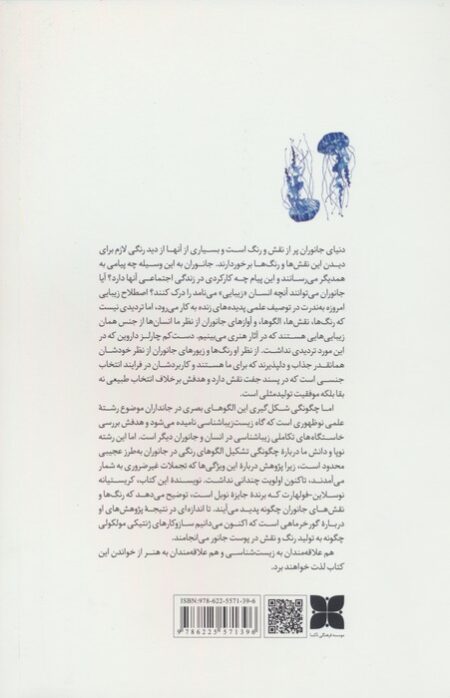 دنیای جانوران پر از نقش و رنگ است و بسیاری از آنها از دید رنگی لازم برای
دیدن این نقش‌ها و رنگ‌ها برخوردارند. جانوران به این وسیله چه پیامی به
همدیگر می‌رسانند و این پیام چه کارکردی در زندگی اجتماعی آنها دارد؟ آیا
جانوران می‌توانند آنچه انسان «زیبایی» می‌نامد را درک کنند؟ اصطلاح زیبایی
امروزه به‌ندرت در توصیف علمی پدیده‌های زنده به کار می‌رود، اما تردیدی نیست
که رنگ‌ها، نقش‌ها، الگوها، و آوازهای جانوران از نظر ما انسان‌ها از جنس همان
زیبایی‌هایی هستند که در آثار هنری می‌بینیم. دست‌کم چارلز داروین که در
این مورد تردیدی نداشت. از نظر او رنگ‌ها و زیورهای جانوران از نظر خودشان
همانقدر جذاب و دلپذیرند که برای ما هستند و کاربردشان در فرایند انتخاب
جنسی است که در پسند جفت نقش دارد و هدفش برخلاف انتخاب طبیعی نه
بقا بلکه موفقیت تولیدمثلی است.
اما چگونگی شکل‌گیری این الگوهای بصری در جانداران موضوع رشتهٔ
علمی نوظهوری است که گاه زیست‌زیباشناسی نامیده می‌شود و هدفش بررسی
خاستگاه‌های تکاملی زیباشناسی در انسان و جانوران دیگر است. اما این رشته
نوپا و دانش ما دربارهٔ چگونگی تشکیل الگوهای رنگی در جانوران به‌طرز عجیبی
محدود است، زیرا پژوهش دربارهٔ این ویژگی‌ها که تجملات غیرضروری به شمار
می‌آمدند، تاکنون اولویت چندانی نداشت. نویسنده این کتاب، کریستیانه
نوسلاین-فولهارت که برندهٔ جایزهٔ نوبل است، توضیح می‌دهد که رنگ‌ها و
نقش‌های جانوران چگونه پدید می‌آیند. تا اندازه‌ای در نتیجهٔ پژوهش‌های او
دربارهٔ گورخرماهی است که اکنون می‌دانیم سازوکارهای ژنتیکی مولکولی
چگونه به تولید رنگ و نقش در پوست جانور می‌انجامند.
هم علاقه‌مندان به زیست‌شناسی و هم علاقه‌مندان به هنر از خواندن این
کتاب لذت خواهند برد.
ISBN:978-622-5571-39-6
9 786225 571396